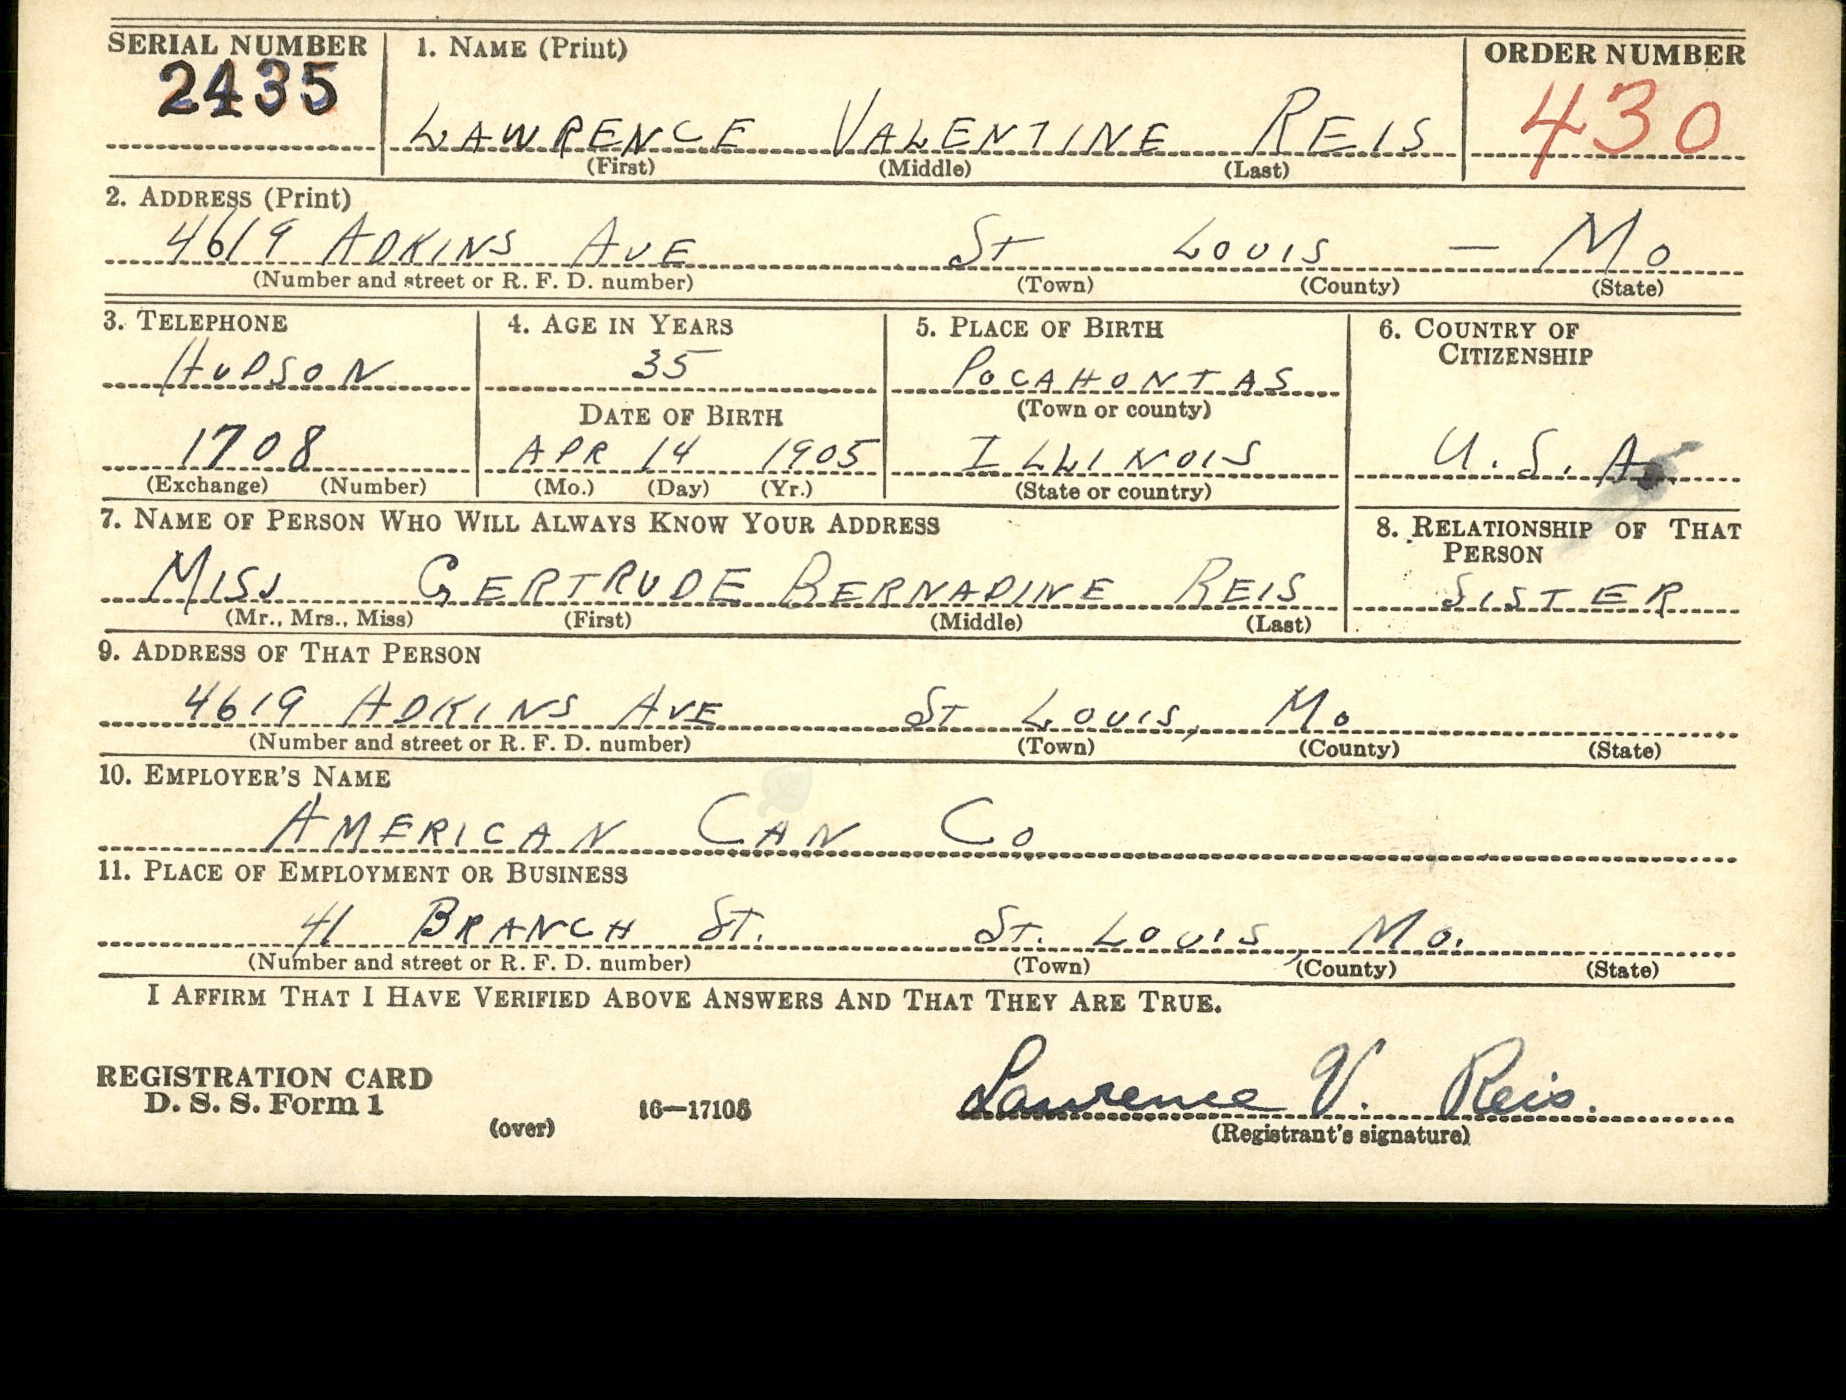 SERIAL NUMBER 1. NAME (Print) ORDER NUMBER
2435 LAWRENCE VALENTINE REIS 430
(First) (Middle) (Last)
2. ADDRESS (Print)
4619 ADKINS AVE ST LOUIS — MO
(Number and street or R. F. D. number) (Town) (County) (State)
3. TELEPHONE 4. AGE IN YEARS 5. PLACE OF BIRTH 6. COUNTRY OF
CITIZENSHIP
HUDSON 35 POCAHONTAS
DATE OF BIRTH (Town or county)
1708 APR 14 1905 ILLINOIS U.S.A.
(Exchange) (Number) (Mo.) (Day) (Yr.) (State or country)
7. NAME OF PERSON WHO WILL ALWAYS KNOW YOUR ADDRESS 8. RELATIONSHIP OF THAT
PERSON
MISS GERTRUDE BERNADINE REIS SISTER
(Mr., Mrs., Miss) (First) (Middle) (Last)
9. ADDRESS OF THAT PERSON
4619 ADKINS AVE ST LOUIS, MO
(Number and street or R. F. D. number) (Town) (County) (State)
10. EMPLOYER'S NAME
AMERICAN CAN CO
11. PLACE OF EMPLOYMENT OR BUSINESS
41 BRANCH ST. ST. LOUIS, MO.
(Number and street or R. F. D. number) (Town) (County) (State)
I AFFIRM THAT I HAVE VERIFIED ABOVE ANSWERS AND THAT THEY ARE TRUE.
REGISTRATION CARD
D. S. S. Form 1 16—17105 Lawrence V. Reis.
(over) (Registrant's signature)